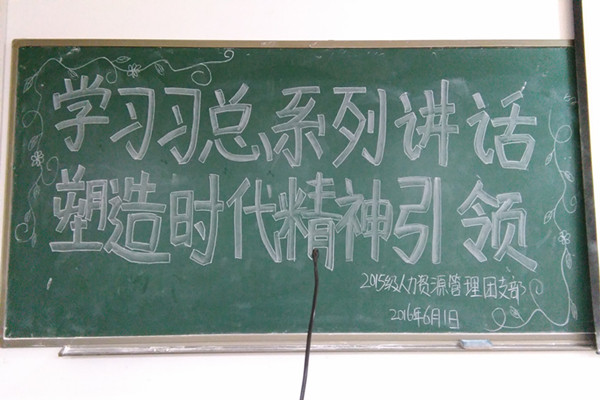 学习习总系列讲话
塑造时代精神引领
2015级人力资源管理团支部
2016年6月1日